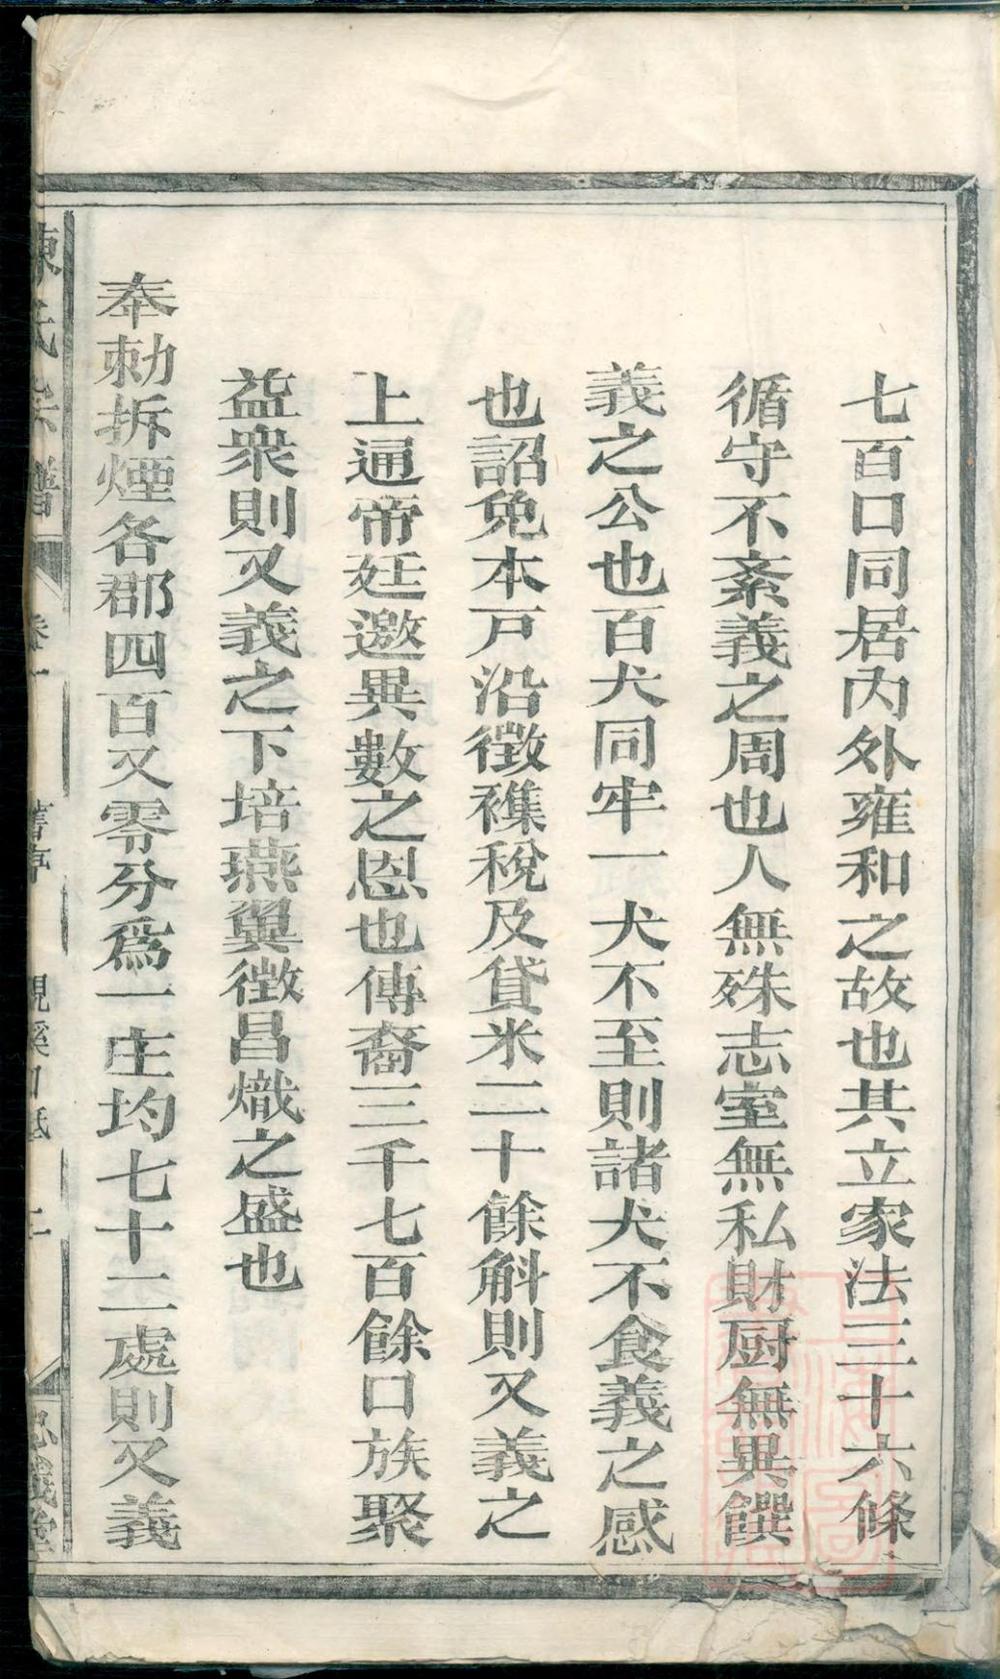 七百口同居內外雍和之故也其立家法三十六條
循守不紊義之周也人無殊志室無私財厨無異饌
義之公也百犬同牢一犬不至則諸犬不食義之感
也詔免本戸沿徵襍稅及貸米二十餘斛則又義之
上通帝廷邀異數之恩也傳裔三千七百餘口族聚
益衆則又義之下培燕翼徵昌熾之盛也
奉勅拆煙各郡四百又零分爲一庄均七十二處則又義
陳氏宗譜
卷一
舊序
二
忠義堂